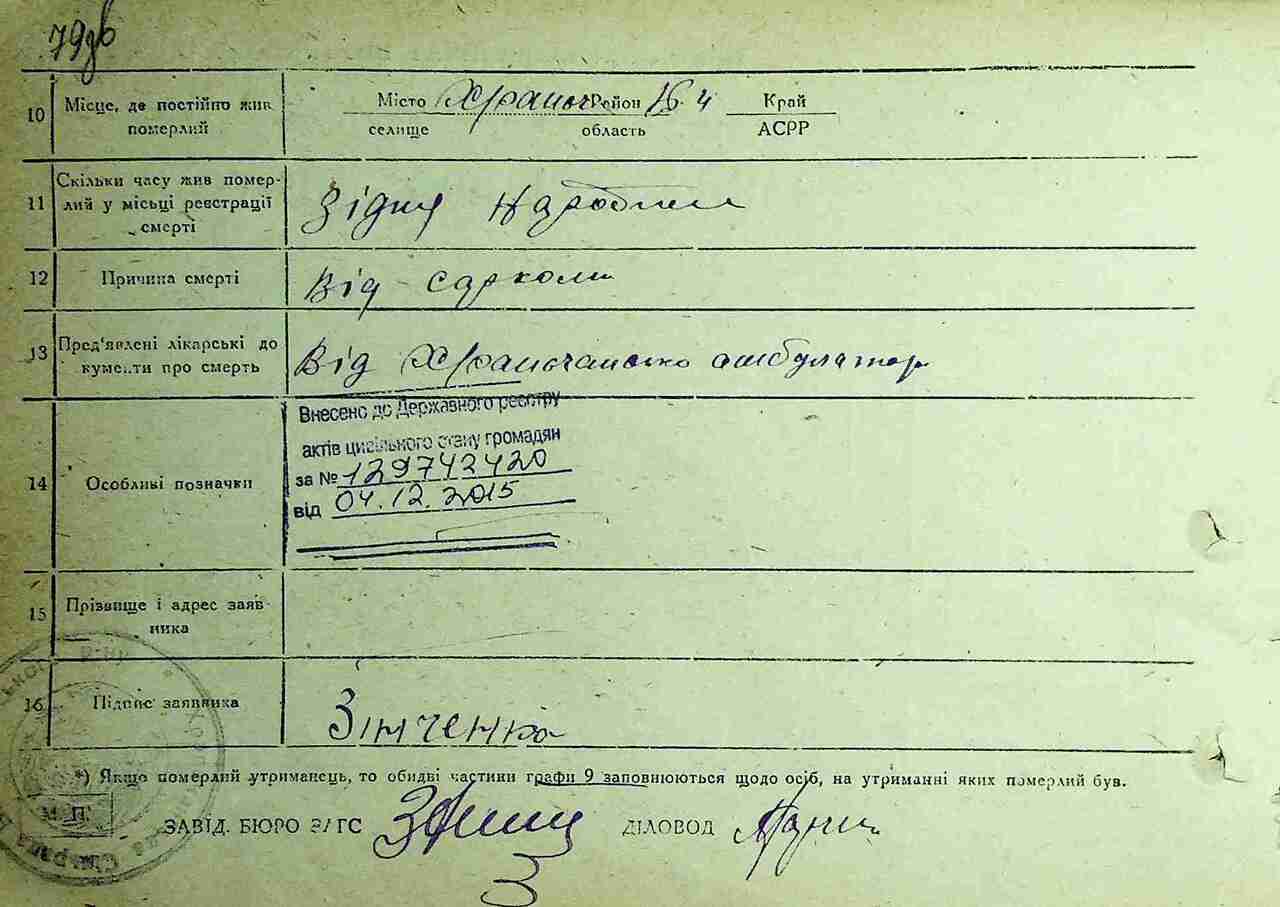 79
10 Місце, де постійно жив Місто Район Край
померлий селище область АСРР
11 Скільки часу жив помер-
лий у місьці реєстрації
смерті
Зідня народженя
12 Причина смерті Від саркоми
13 Пред'явлені лікарські до
кументи про смерть
Від амбулатор
14 Особливі позначки
Внесено до Державного реєстру
актів цивільного стану громадян
за № 129742420
від 04.12.2015
15 Прізвище і адрес заяв
ника
16 Підпис заявника Зінченко
*) Якщо померлий утриманець, то обидві частини графи 9 заповнюються щодо осіб, на утриманні яких померлий був.
М. П. ЗАВІД. БЮРО ЗАГС ДІЛОВОД
3